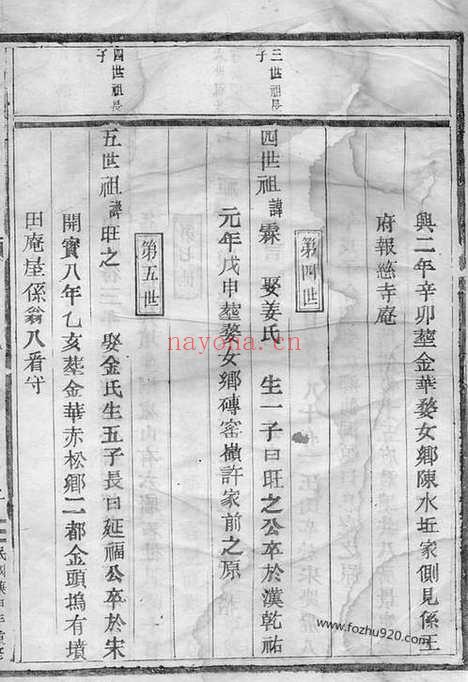 興二年辛卯塟金華婺女鄉陳水坵家側見係王
府報慈寺庵
第四世
三世祖長子
四世祖諱霖 娶姜氏 生一子曰旺之公卒於漢乾祐
元年戊申塟婺女鄉磚窑嶺許家前之原
第五世
四世祖長子
五世祖諱旺之 娶金氏生五子長曰延福公卒於宋
開寳八年乙亥塟金華赤松鄉二都金頭塢有墳
田庵屋係翁八看守
nayona.cn
www.fozhu920.com